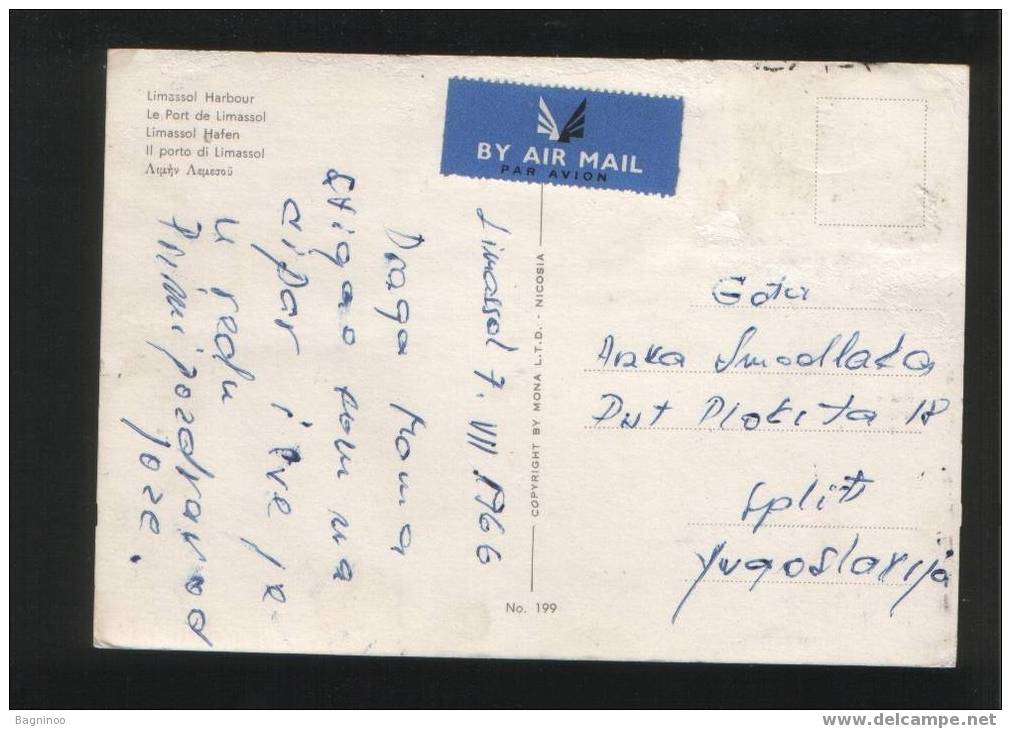 Limassol Harbour
Le Port de Limassol
Limassol Hafen
Il porto di Limassol
Λιμὴν Λεμεσοῦ
BY AIR MAIL
PAR AVION
Limassol 7. VII 1966
Draga Mama
Stigao sam na
Cipar i sve je
u redu
Primi pozdrav od
Joze.
COPYRIGHT BY MONA L.T.D. - NICOSIA
No. 199
Anka Smodlaka
Put Plokita 18
Split
Yugoslavija
Bagninoo
www.delcampe.net